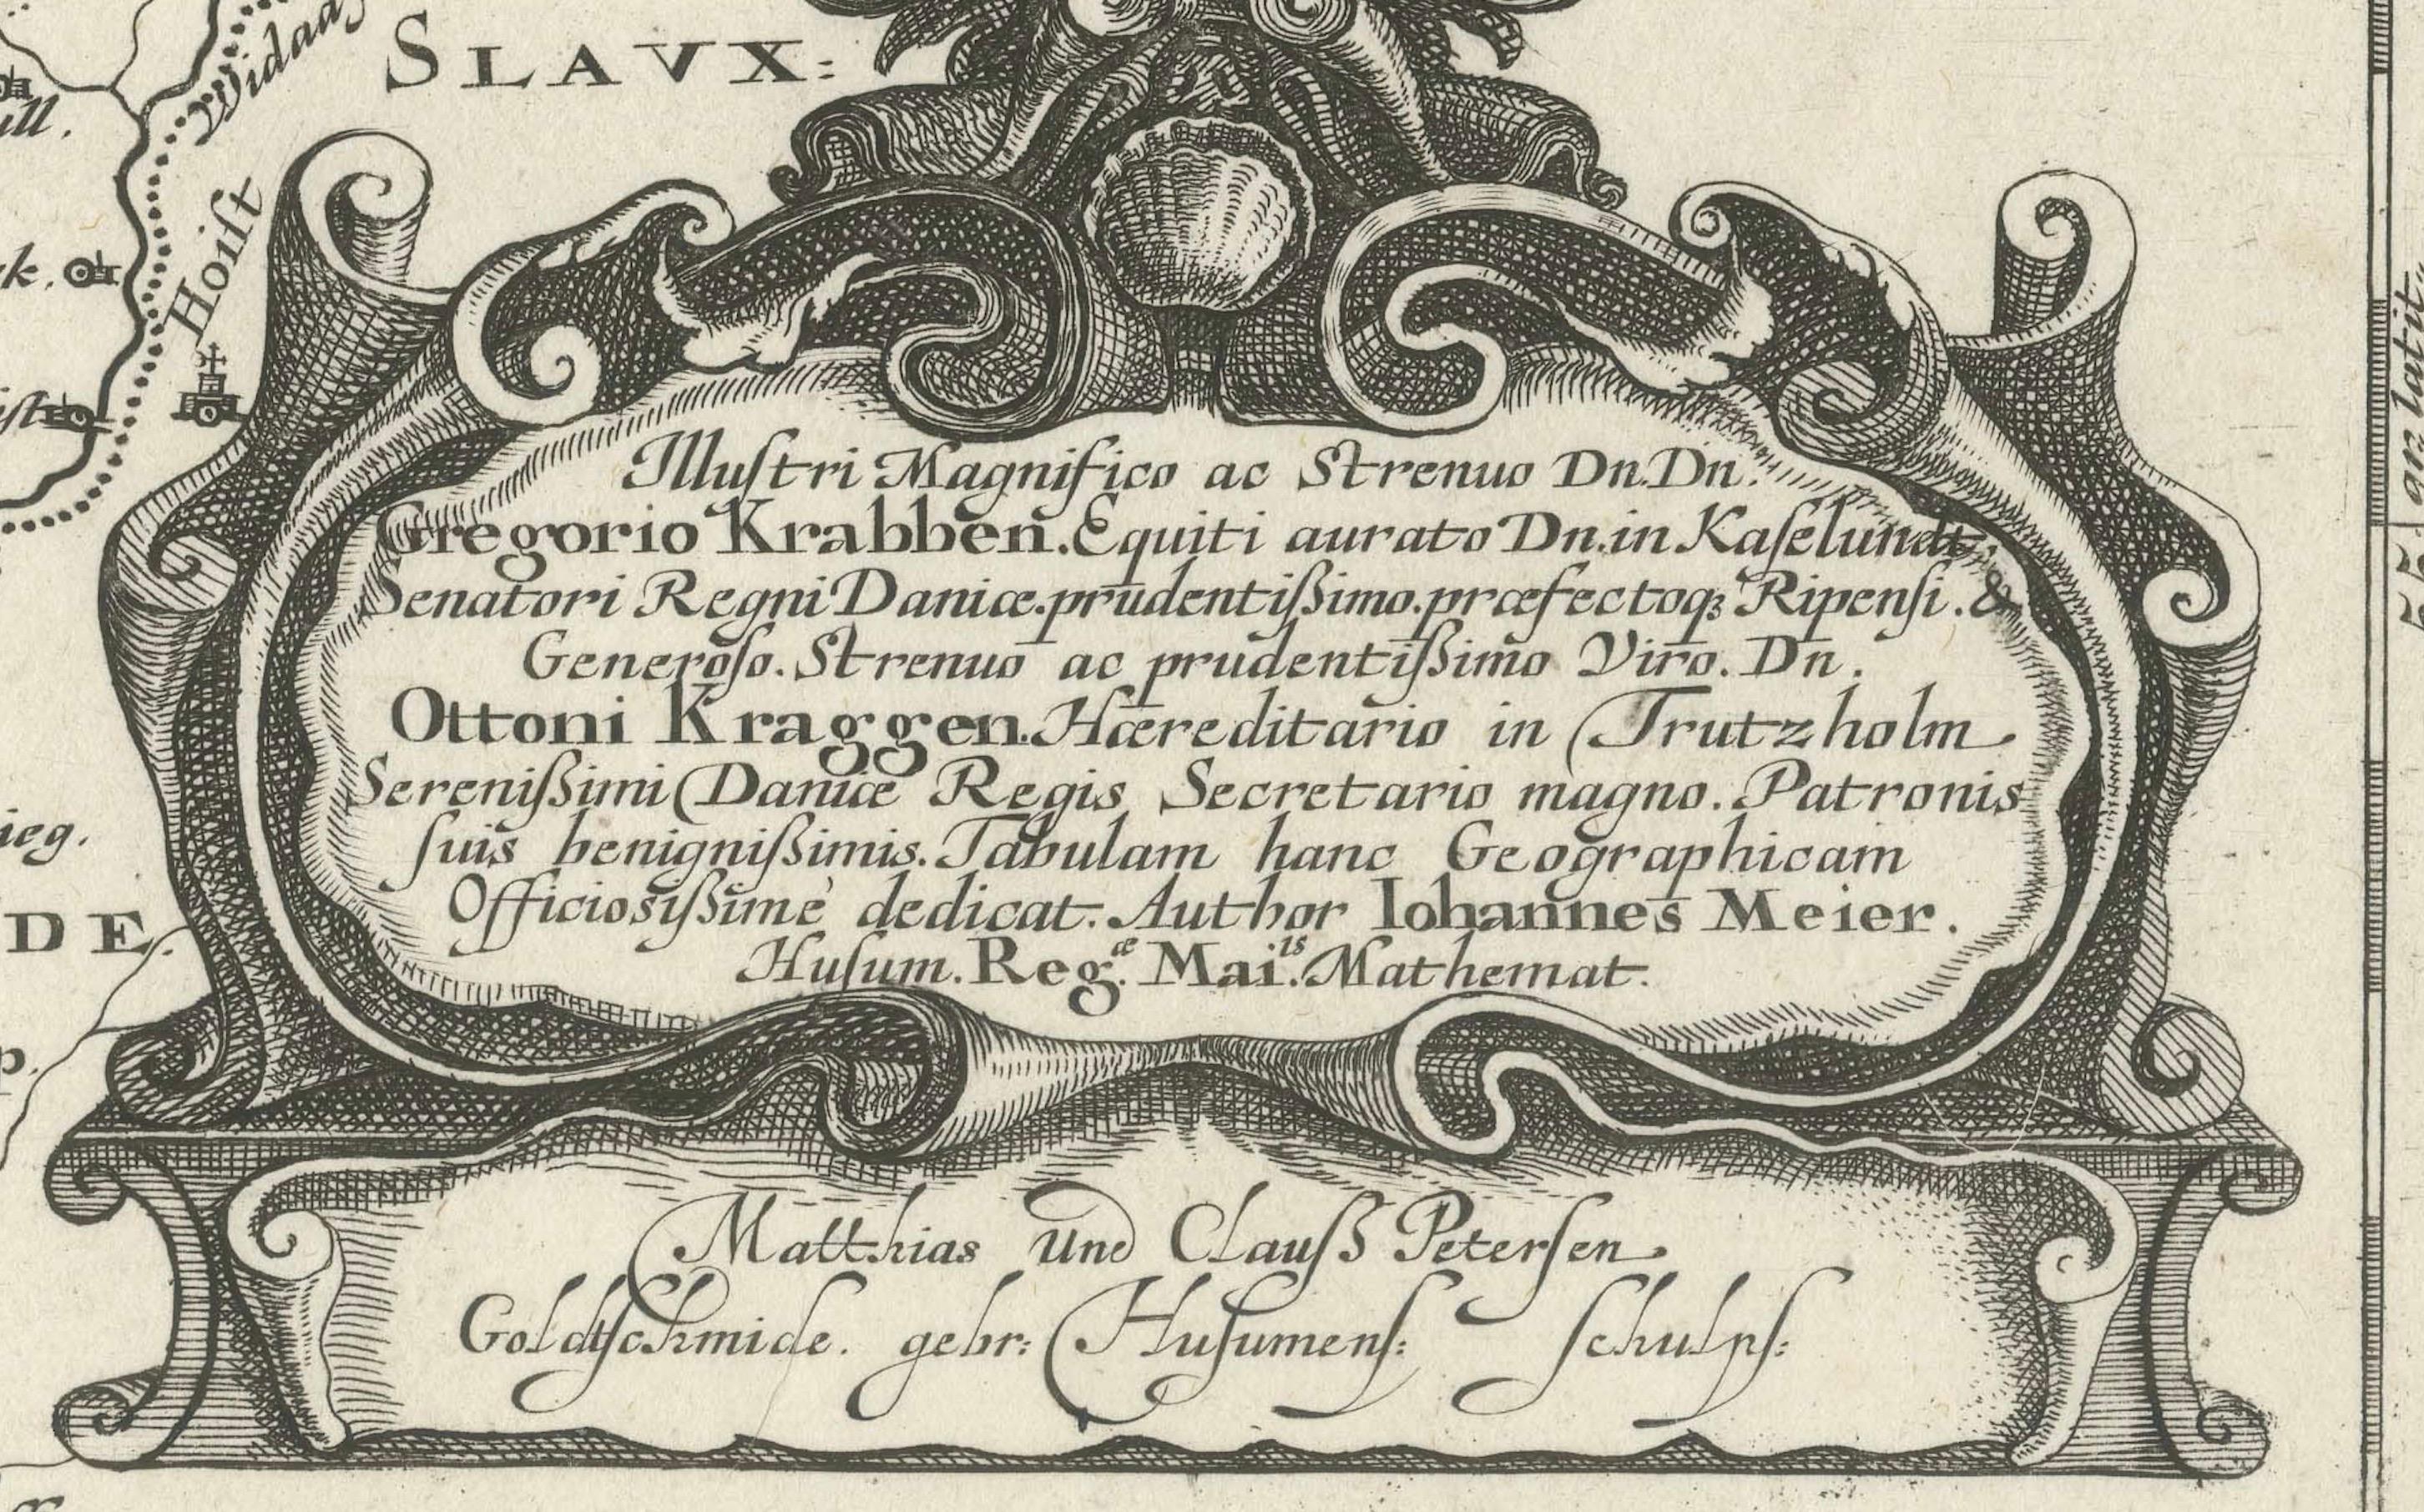 Widaa
SLAVX:
ill.
Hoiſt
k.
iſt
gr. latit.
Illuſtri Magnifico ac Strenuo Dn. Dn.
Gregorio Krabben. Equiti aurato Dn. in Kaſelundt,
Senatori Regni Daniæ. prudentißimo. præfectoqꝫ Ripenſi. &
Generoſo. Strenuo ac prudentißimo Viro. Dn.
Ottoni Kraggen. Hæreditario in Trutzholm
Serenißimi Daniæ Regis Secretario magno. Patronis
ſuis benignißimis. Tabulam hanc Geographicam
Officiosißimè dedicat. Author Iohannes Meier.
Huſum. Reg.æ Mai.ts Mathemat.
ieg.
DE.
p.
Matthias und Clauſß Peterſen
Goldtſchmide. gebr: Huſumenſ: ſchulpſ: